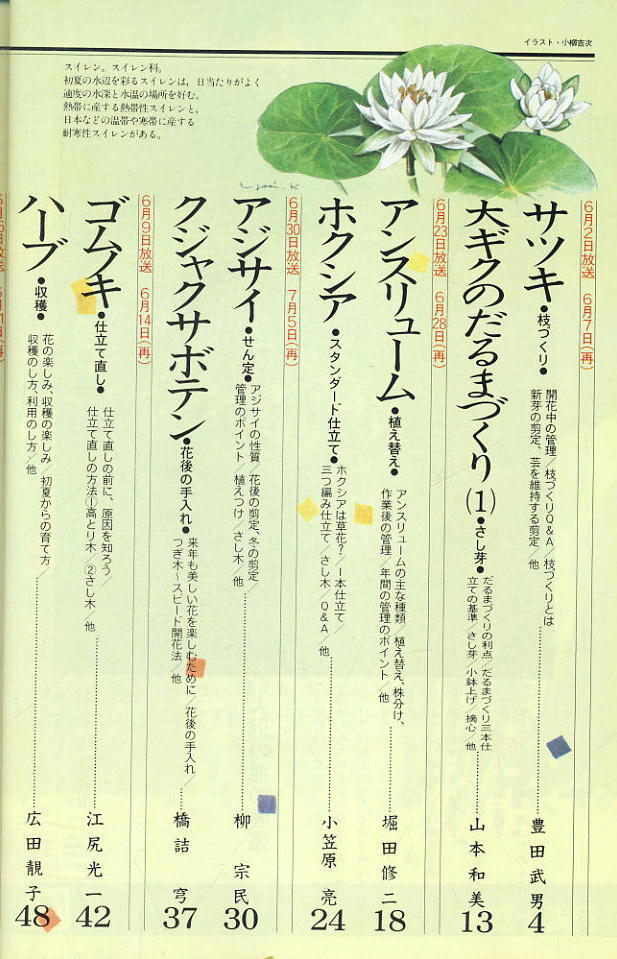 イラスト・小柳吉次
スイレン。スイレン科。
初夏の水辺を彩るスイレンは、日当たりがよく
適度の水深と水温の場所を好む。
熱帯に産する熱帯性スイレンと、
日本などの温帯や寒帯に産する
耐寒性スイレンがある。
6月2日放送 6月7日(再)
サツキ●枝づくり●
開花中の管理/枝づくりQ&A/枝づくりとは
新芽の剪定、芸を維持する剪定/他
豊田武男
4
大ギクのだるまづくり(1)●さし芽●
だるまづくりの利点/だるまづくり三本仕
立ての基準/さし芽/小鉢上げ/摘心/他
山本和美
13
6月23日放送 6月28日(再)
アンスリューム●植え替え●
アンスリュームの主な種類/植え替え、株分け、
作業後の管理/年間の管理のポイント/他
堀田修二
18
ホクシア●スタンダード仕立て●
ホクシアは草花?/1本仕立て/
三つ編み仕立て/さし木/Q&A/他
小笠原亮
24
6月30日放送 7月5日(再)
アジサイ●せん定●
アジサイの性質/花後の剪定、冬の剪定/
管理のポイント/植えつけ/さし木/他
柳宗民
30
クジャクサボテン●花後の手入れ●
来年も美しい花を楽しむために/花後の手入れ/
つぎ木〜スピード開花法/他
橋詰 穹
37
6月9日放送 6月14日(再)
ゴムノキ●仕立て直し●
仕立て直しの前に、原因を知ろう/
仕立て直しの方法①高とり木/②さし木/他
江尻光一
42
ハーブ●収穫●
花の楽しみ、収穫の楽しみ/初夏からの育て方/
収穫のし方、利用のし方/他
広田靚子
48